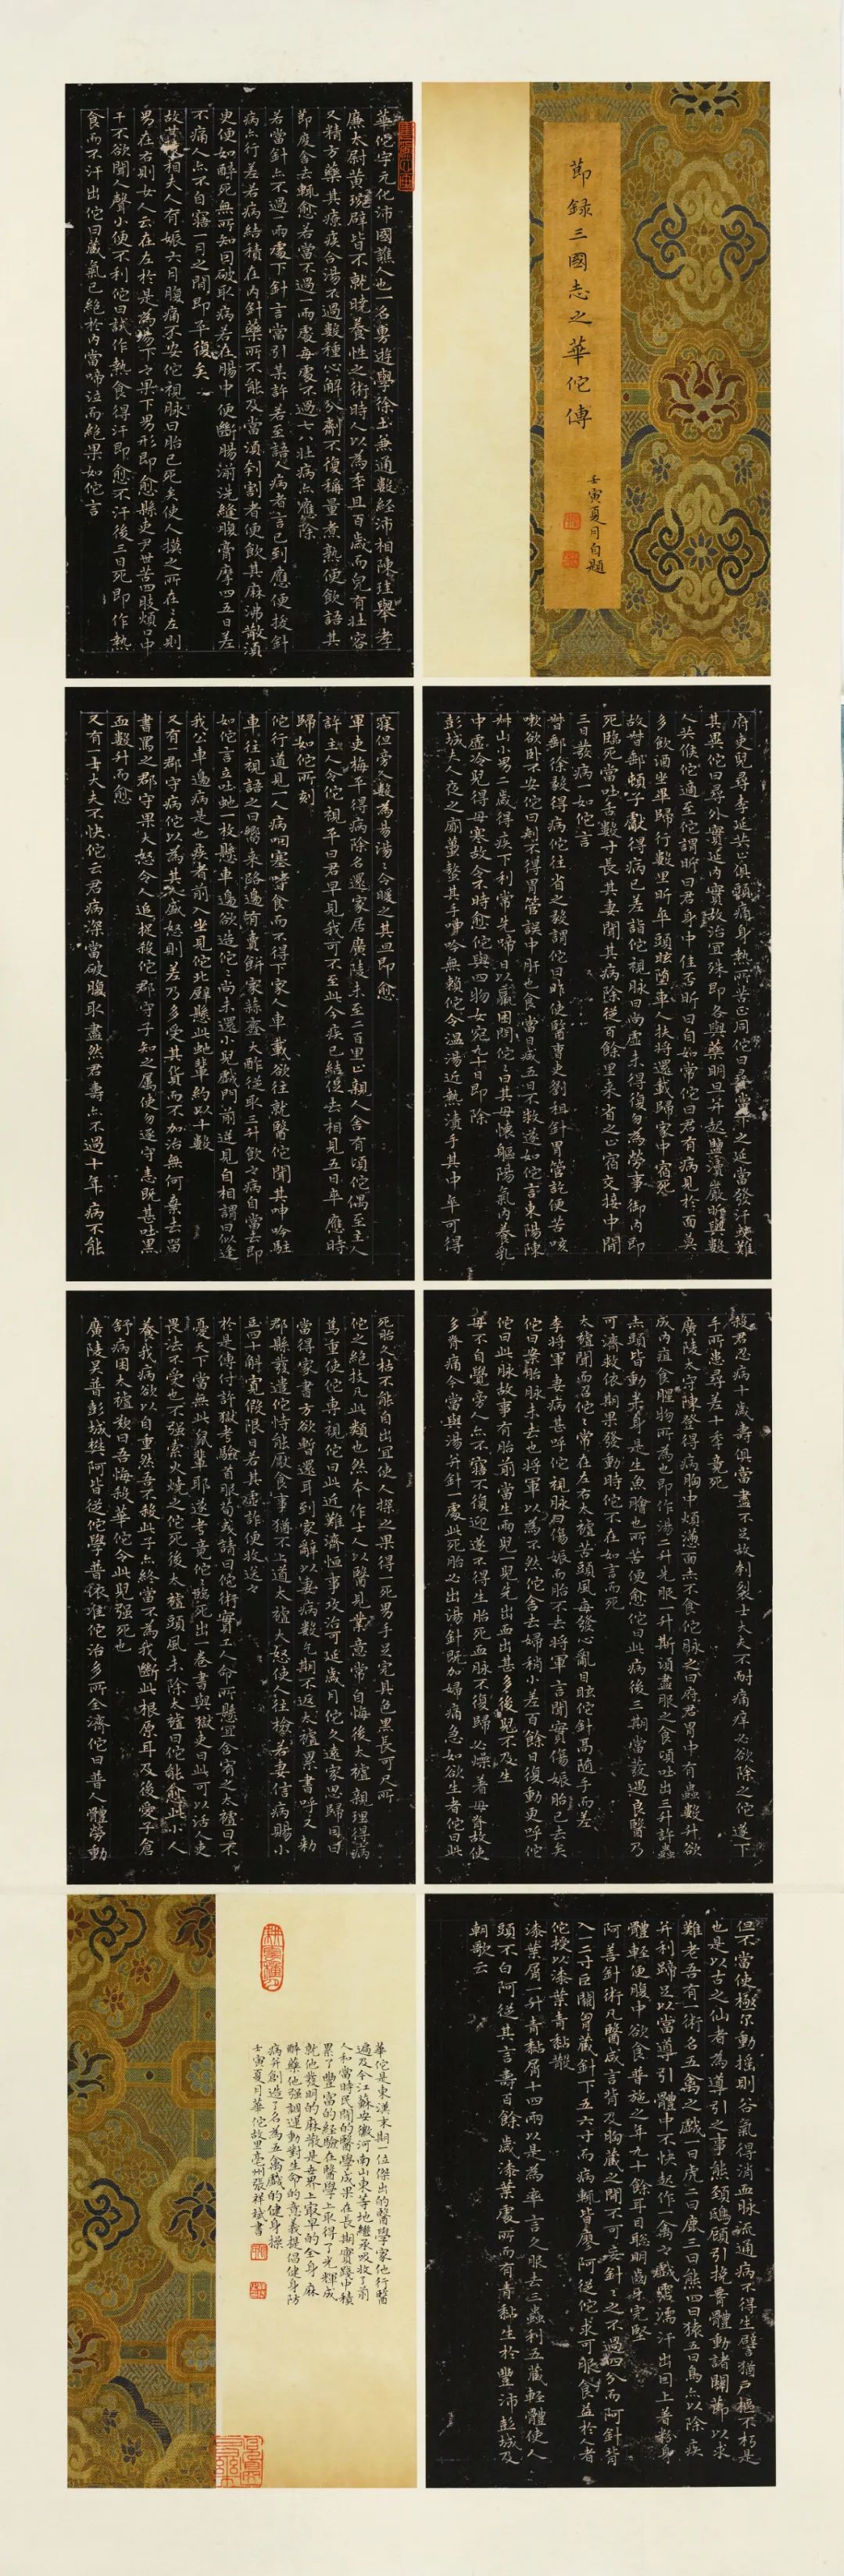 節録三國志之華佗傳
壬寅夏月自題
華佗字元化沛國譙人也一名旉遊學徐土兼通數經沛相陳珪舉孝
廉太尉黃琬辟皆不就曉養性之術時人以為年且百歲而皃有壯容
又精方藥其療疾合湯不過數種心解分劑不復稱量煮熟便飲語其
節度舍去輒愈若當灸不過一兩處每處不過七八壯病亦應除
若當針亦不過一兩處下針言當引某許若至語人病者言已到應便拔針
病亦行差若病結積在內針藥所不能及當須刳割者便飲其麻沸散須
臾便如醉死無所知因破取病若在腸中便斷腸湔洗縫腹膏摩四五日差
不痛人亦不自寤一月之間即平復矣
故甘陵相夫人有娠六月腹痛不安佗視脉曰胎已死矣使人摸之所在在左則
男在右則女人云在左於是為湯下之果下男形即愈縣吏尹世苦四肢煩口中
干不欲聞人聲小便不利佗曰試作熱食得汗即愈不汗後三日死即作熱
食而不汗出佗曰藏氣已絕於內當啼泣而絕果如佗言
府吏兒尋李延共止俱頭痛身熱所苦正同佗曰尋當下之延當發汗或難
其異佗曰尋外實延內實故治宜殊即各與藥明旦并起鹽瀆嚴昕與數
人共候佗適至佗謂昕曰君身中佳否昕曰自如常佗曰君有病見於面莫
多飲酒坐畢歸行數里昕卒頭眩墮車人扶將還載歸家中宿死
故督郵頓子獻得病已差詣佗視脉曰尚虛未得復勿為勞事御內即
死臨死當吐舌數寸其妻聞其病除從百餘里来省之止宿交接中間
三日發病一如佗言
督郵徐毅得病佗往省之毅謂佗曰昨使醫曹吏劉租針胃管訖便苦咳
嗽欲卧不安佗曰刺不得胃管誤中肝也食當日減五日不救遂如佗言東陽陳
叔山小男二歲得疾下利常先啼日以羸困問佗佗曰其母懷軀陽氣內養乳
中虛冷兒得母寒故令不時愈佗與四物女宛丸十日即除
彭城夫人夜之廁蠆螫其手呻吟無賴佗令溫湯近熱漬手其中卒可得
寐但旁人數為易湯湯令暖之其旦即愈
軍吏梅平得病除名還家家居廣陵未至二百里止親人舍有頃佗偶至主人
許主人令佗視平佗曰君早見我可不至此今疾已結促去相見五日卒應時
歸如佗所刻
佗行道見一人病咽塞嗜食而不得下家人車載欲往就醫佗聞其呻吟駐
車往視語之曰嚮来路邊有賣餅家蒜齏大酢從取三升飲之病自當去即
如佗言立吐蛇一枚懸車邊欲造佗佗尚未還小兒戲門前逆見自相謂曰似逢
我公車邊病是也疾者前入坐見佗北壁懸此蛇輩約以十數
又有一郡守病佗以為其人盛怒則差乃多受其貨而不加治無何棄去留
書罵之郡守果大怒令人追捉殺佗郡守子知之屬使勿逐守恚既甚吐黑
血數升而愈
又有一士大夫不快佗云君病深當破腹取盡然君壽亦不過十年病不能
殺君忍病十歲壽俱當盡不足故刳裂士大夫不耐痛痒必欲除之佗遂下
手所患尋差十年竟死
廣陵太守陳登得病胸中煩懣面赤不食佗脉之曰府君胃中有蟲數升欲
成內疽食腥物所為也即作湯二升先服一升斯須盡服之食頃吐出三升許蟲
赤頭皆動半身是生魚膾也所苦便愈佗曰此病後三期當發遇良醫乃
可濟救依期果發動時佗不在如言而死
太祖聞而召佗佗常在左右太祖苦頭風每發心亂目眩佗針鬲隨手而差
李將軍妻病甚呼佗視脉曰傷娠而胎不去將軍言聞實傷娠胎已去矣
佗曰案脉胎未去也將軍以為不然佗舍去婦稍小差百餘日復動更呼佗
佗曰此脉故事有胎前當生兩兒一兒先出血出甚多後兒不及生
母不自覺旁人亦不寤不復迎遂不得生胎死血脉不復歸必燥著母脊故使
多脊痛今當與湯并針一處此死胎必出湯針既加婦痛急如欲生者佗曰此
死胎久枯不能自出宜使人探之果得一死男手足完具色黑長可尺所
佗之絕技凡此類也然本作士人以醫見業意常自悔後太祖親理得病
篤重使佗專視佗曰此近難濟恒事攻治可延歲月佗久遠家思歸因曰
當得家書方欲暫還耳到家辭以妻病數乞期不返太祖累書呼又勑
郡縣發遣佗恃能厭食事猶不上道太祖大怒使人往檢若妻信病賜小
豆四十斛寬假限日若其虛詐便收送之
於是傳付許獄考驗首服荀彧請曰佗術實工人命所懸宜含宥之太祖曰不
憂天下當無此鼠輩耶遂考竟佗佗臨死出一卷書與獄吏曰此可以活人吏
畏法不受佗亦不强索火燒之佗死後太祖頭風未除太祖曰佗能愈此小人
養我病欲以自重然吾不殺此子亦終當不為我斷此根原耳及後愛子倉
舒病困太祖歎曰吾悔殺華佗令此兒强死也
廣陵吴普彭城樊阿皆從佗學普依准佗治多所全濟佗曰普人體勞動
但不當使極尔動搖則谷氣得消血脉疏通病不得生譬猶户樞不朽是
也是以古之仙者為導引之事熊頸鴟顧引挽要體動諸關節以求
難老吾有一術名五禽之戲一曰虎二曰鹿三曰熊四曰猿五曰鳥亦以除疾
并利蹄足以當導引體中不快起作一禽之戲霑濡汗出因上著粉身
體輕便腹中欲食普施之年九十餘耳目聰明齒牙完堅
阿善針術凡醫咸言背及胸藏之間不可妄針針之不過四分而阿針背
入一二寸巨闕胷藏針下五六寸而病輒皆廖阿從佗求可服食益於人者
佗授以漆葉青黏散
漆葉屑一升青黏屑十四兩以是為率言久服去三蟲利五藏輕體使人
頭不白阿從其言壽百餘歲漆葉處所而有青黏生於豐沛彭城及
朝歌云
華佗是東漢末期一位傑出的醫學家他行醫
遍及今江蘇安徽河南山東等地繼承吸收了前
人和當時民間的醫學成果在長期實踐中積
累了豐富的經驗在醫學上取得了光輝成
就他發明的麻散是世界上最早的全身麻
醉藥他强調運動對生命的意義提倡健身防
病并創造了名為五禽戲的健身操
壬寅夏月華佗故里亳州張祥斌書